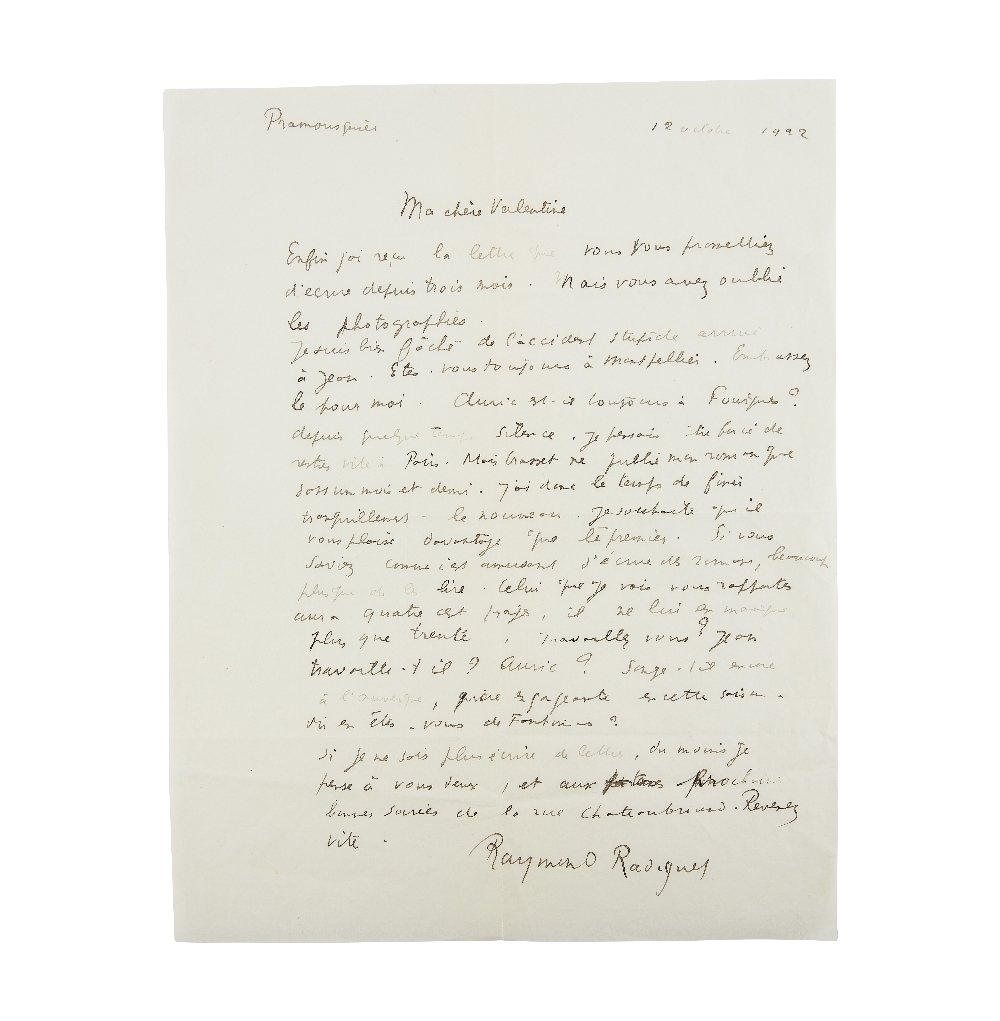 Pramousquier
12 octobre 1922
Ma chère Valentine
Enfin j'ai reçu la lettre que vous vous promettiez
d'écrire depuis trois mois. Mais vous avez oublié
les photographies.
Je suis bien fâché de l'accident stupide arrivé
à Jean. Etes-vous toujours à Montpellier. Embrassez
le pour moi. Auric est-il toujours à Fouigues ?
depuis quelque temps silence. Je pensais être forcé de
rentrer vite à Paris. Mais Grasset ne publie mon roman que
dans un mois et demi. J'ai donc le temps de finir
tranquillement le nouveau. Je souhaite qu'il
vous plaise davantage que le premier. Si vous
saviez comme c'est amusant d'écrire des romans, beaucoup
plus que de les lire. Celui que je vais vous rapporter
aura quatre cent pages, il ne lui en manque
plus que trente. Travaillez vous ? Jean
travaille-t il ? Auric ? Songe-t il encore
à l'Auvergne, guère engageante en cette saison.
Où en êtes-vous de Fontenas ?
Si je ne sais plus écrire de lettre, du moins je
pense à vous deux, et aux prochaines
bonnes soirées de la rue Chateaubriand. Revenez
vite.
Raymond Radiguet